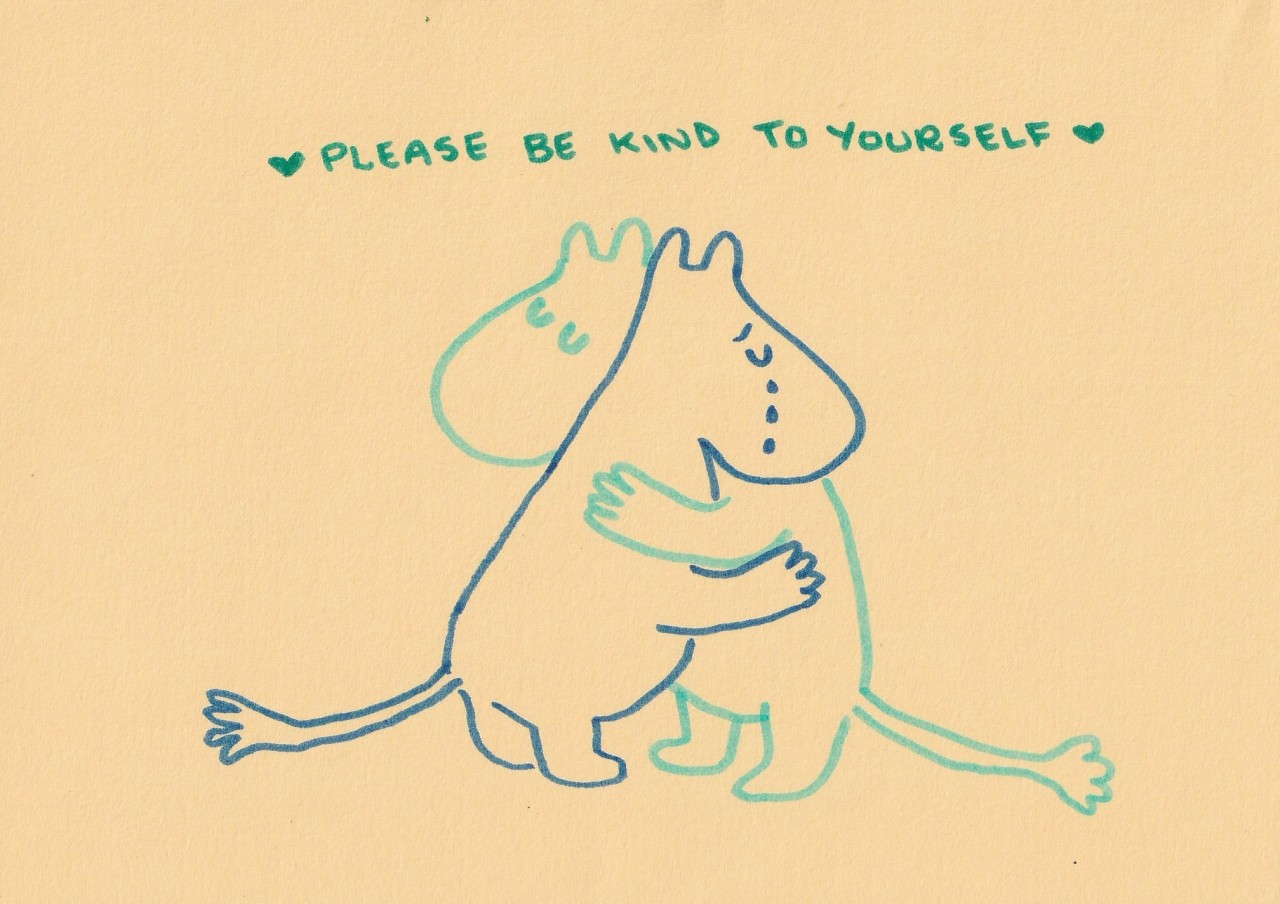 ♥ PLEASE BE KIND TO YOURSELF ♥